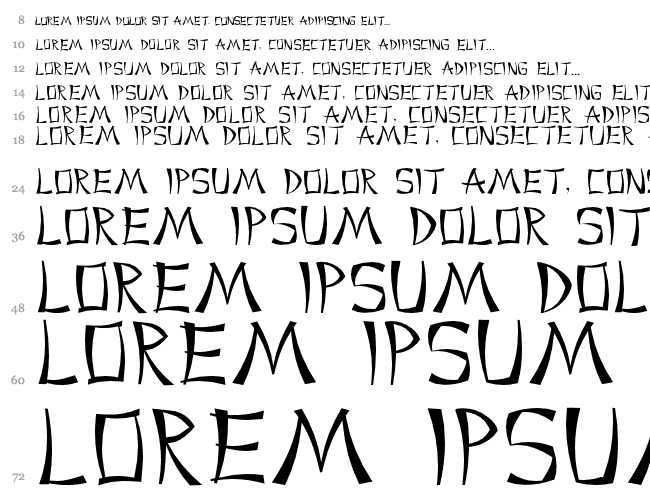 8 LOREM IPSUM DOLOR SIT AMET, CONSECTETUER ADIPISCING ELIT...
10 LOREM IPSUM DOLOR SIT AMET, CONSECTETUER ADIPISCING ELIT...
12 LOREM IPSUM DOLOR SIT AMET, CONSECTETUER ADIPISCING ELIT...
14 LOREM IPSUM DOLOR SIT AMET, CONSECTETUER ADIPISCING ELIT
16 LOREM IPSUM DOLOR SIT AMET, CONSECTETUER ADIPIS
18 LOREM IPSUM DOLOR SIT AMET, CONSECTETUER
24 LOREM IPSUM DOLOR SIT AMET, CONS
36 LOREM IPSUM DOLOR SIT
48 LOREM IPSUM DOL
60 LOREM IPSUM
72 LOREM IPSUM